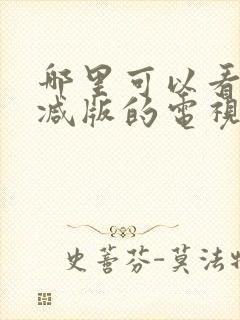 哪里可以看
减版的電視
史蒈芬-莫法特